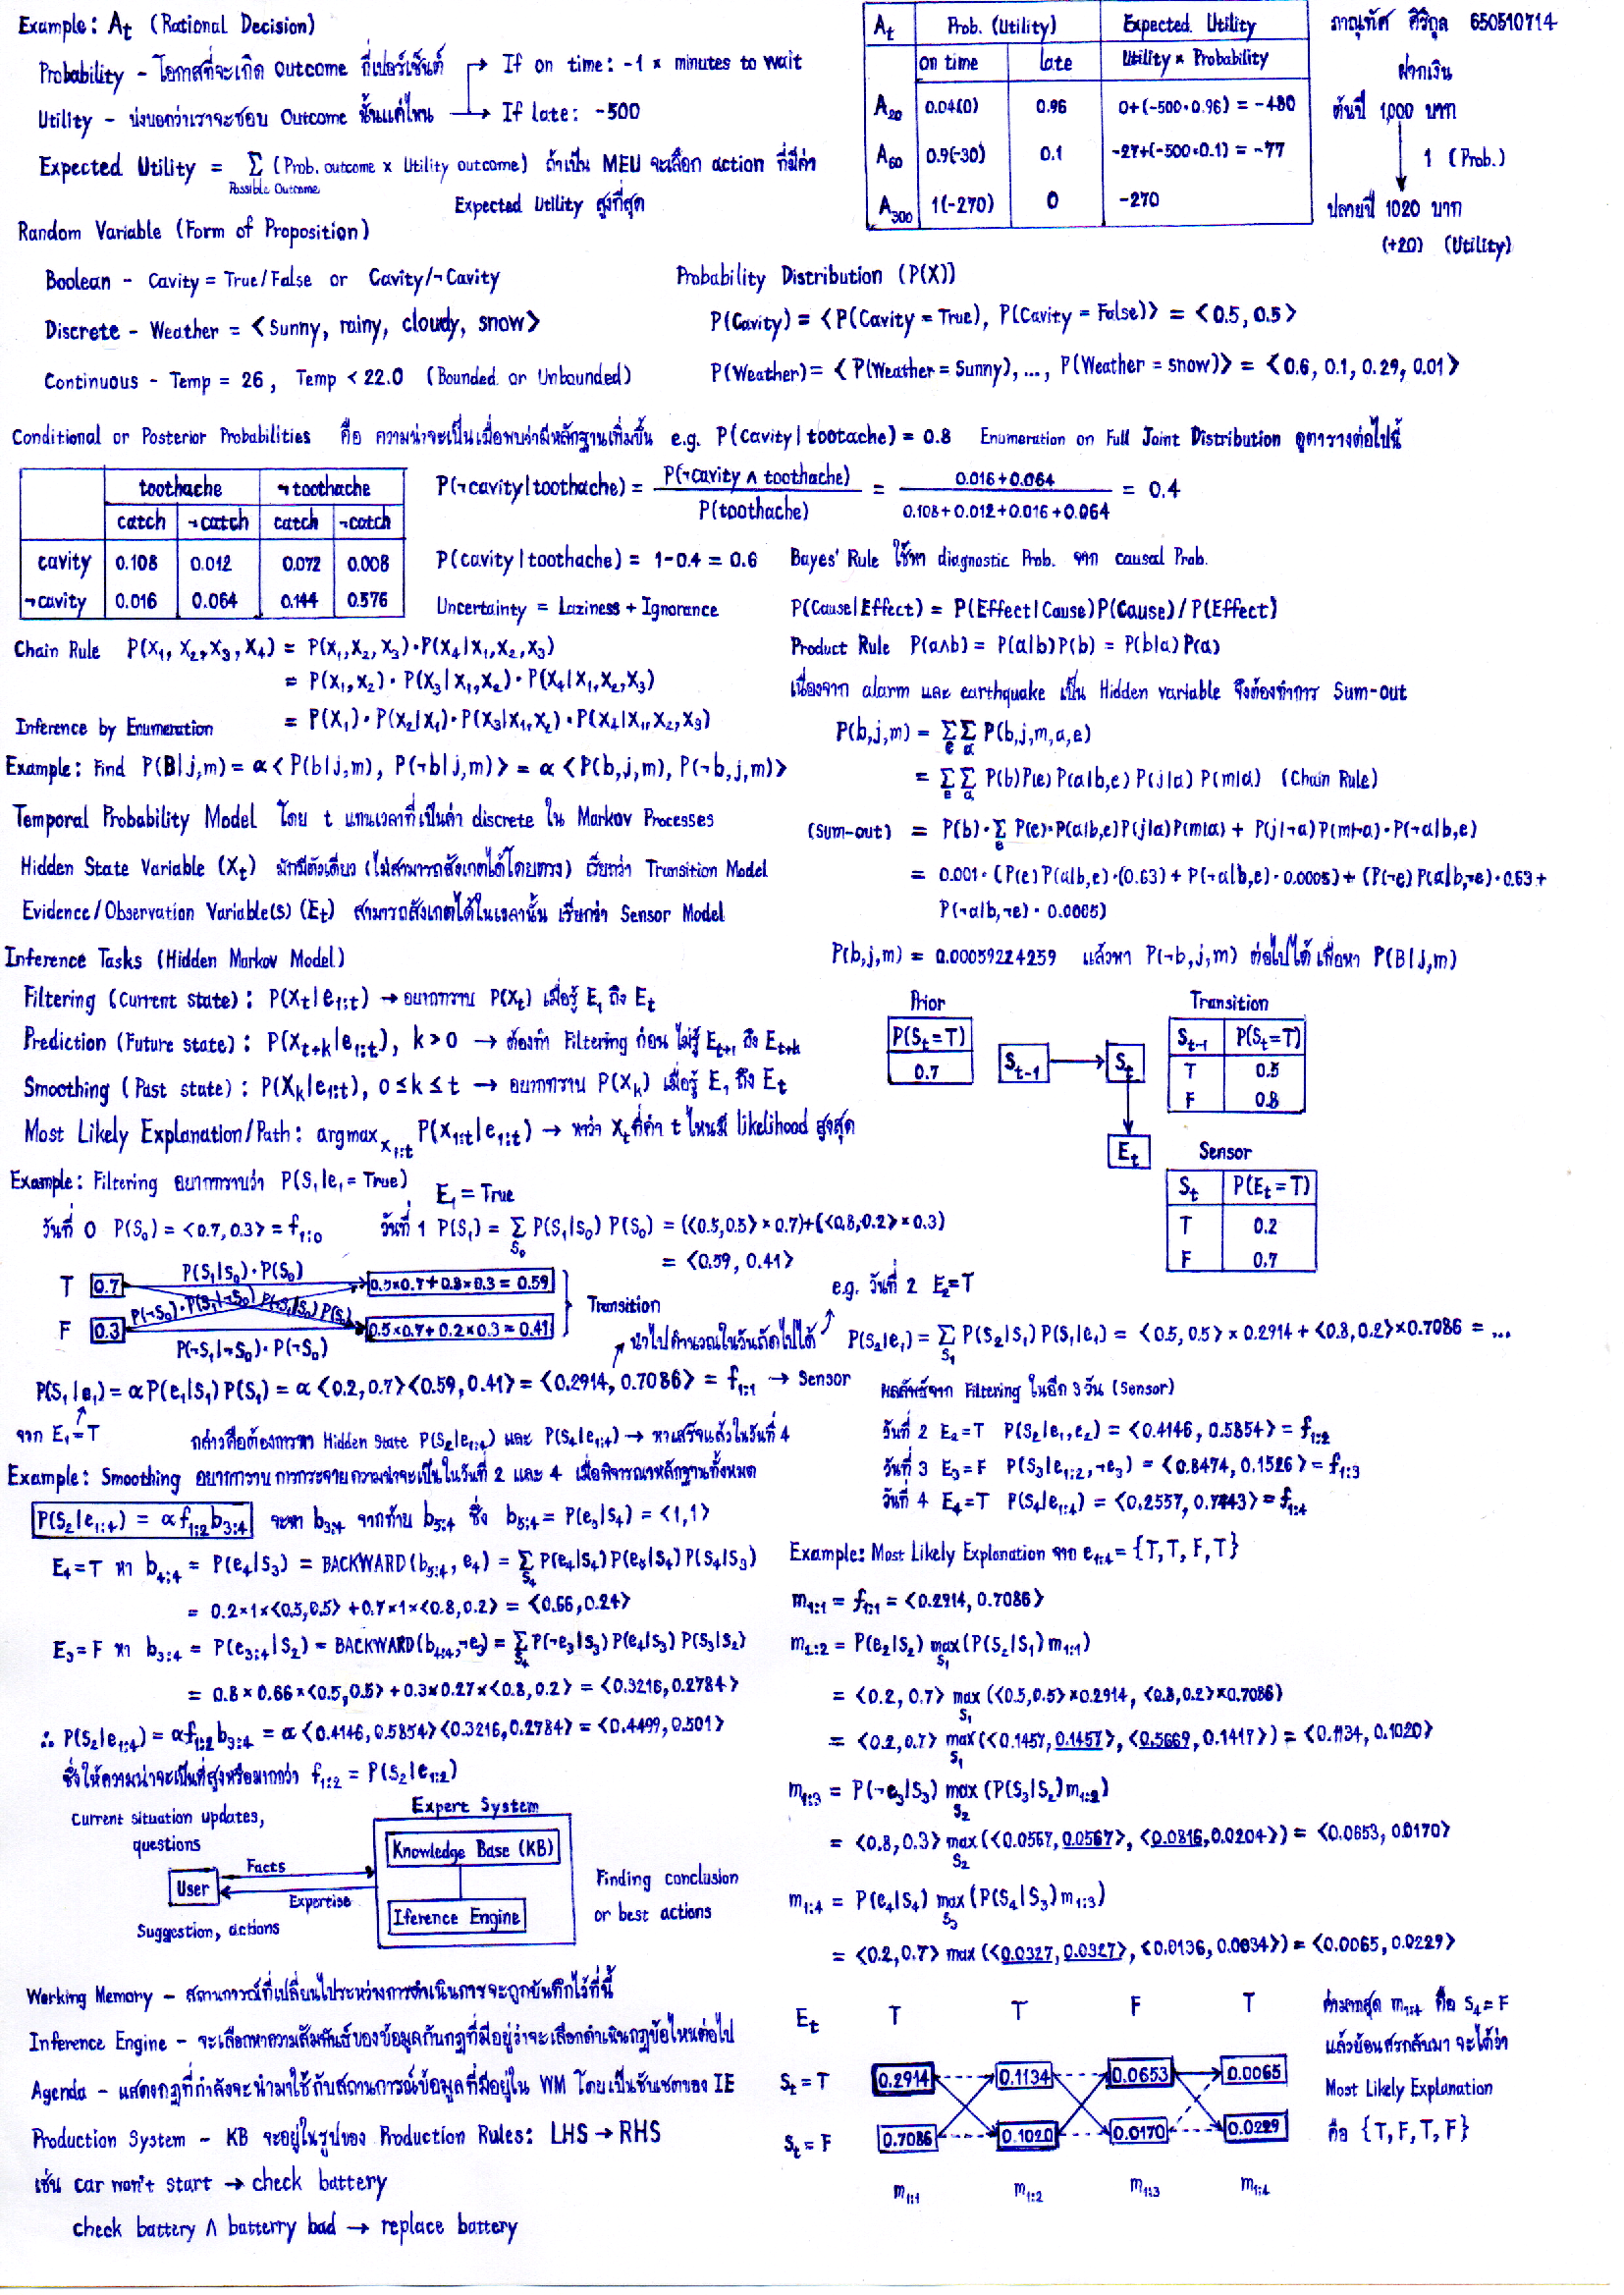 Example: At (Rational Decision)
Probability - โอกาสที่จะเกิด outcome กี่เปอร์เซ็นต์ → If on time: -1 × minutes to wait
Utility - บ่งบอกว่าเราจะชอบ Outcome นั้นแค่ไหน → If late: -500
Expected Utility = Σ (Prob. outcome × Utility outcome) ถ้าเป็น MEU จะเลือก action ที่มีค่า
Possible Outcome
Expected Utility สูงที่สุด
At Prob. (Utility) Expected Utility
on time late Utility × Probability
A20 0.04(0) 0.96 0+(-500·0.96) = -480
A60 0.9(-30) 0.1 -27+(-500·0.1) = -77
A300 1(-270) 0 -270
ภาณุทัศ ศิริกุล 650510714
ฝากเงิน
ต้นปี 1,000 บาท
1 (Prob.)
ปลายปี 1020 บาท
(+20) (Utility)
Random Variable (Form of Proposition)
Boolean - Cavity = True/False or Cavity/¬Cavity
Discrete - Weather = <Sunny, rainy, cloudy, snow>
Continuous - Temp = 26, Temp < 22.0 (Bounded or Unbounded)
Probability Distribution (P(X))
P(Cavity) = <P(Cavity = True), P(Cavity = False)> = <0.5, 0.5>
P(Weather) = <P(Weather = Sunny), ..., P(Weather = snow)> = <0.6, 0.1, 0.29, 0.01>
Conditional or Posterior Probabilities คือ ความน่าจะเป็นเมื่อพบว่ามีหลักฐานเพิ่มขึ้น e.g. P(cavity|tootache) = 0.8 Enumeration on Full Joint Distribution ดูตารางต่อไปนี้
toothache ¬toothache
catch ¬catch catch ¬catch
cavity 0.108 0.012 0.072 0.008
¬cavity 0.016 0.064 0.144 0.576
P(¬cavity|toothache) = P(¬cavity ∧ toothache) / P(toothache) = 0.016+0.064 / 0.108+0.012+0.016+0.064 = 0.4
P(cavity|toothache) = 1-0.4 = 0.6
Uncertainty = Laziness + Ignorance
Bayes' Rule ใช้หา diagnostic Prob. จาก causal Prob.
P(Cause|Effect) = P(Effect|Cause)P(Cause)/P(Effect)
Product Rule P(a∧b) = P(a|b)P(b) = P(b|a)P(a)
Chain Rule P(X1, X2, X3, X4) = P(X1, X2, X3)·P(X4|X1,X2,X3)
= P(X1,X2)·P(X3|X1,X2)·P(X4|X1,X2,X3)
Inference by Enumeration = P(X1)·P(X2|X1)·P(X3|X1,X2)·P(X4|X1,X2,X3)
Example: Find P(B|j,m) = α<P(b|j,m), P(¬b|j,m)> = α<P(b,j,m), P(¬b,j,m)>
เนื่องจาก alarm และ earthquake เป็น Hidden variable จึงต้องทำการ Sum-out
P(b,j,m) = Σe Σa P(b,j,m,a,e)
= Σe Σa P(b)P(e)P(a|b,e)P(j|a)P(m|a) (Chain Rule)
(Sum-out) = P(b)·Σe P(e)·P(a|b,e)P(j|a)P(m|a) + P(j|¬a)P(m|¬a)·P(¬a|b,e)
= 0.001·(P(e)P(a|b,e)·(0.63) + P(¬a|b,e)·0.0005) + (P(¬e)P(a|b,¬e)·0.63 +
P(¬a|b,¬e)·0.0005)
P(b,j,m) = 0.00059224259 แล้วหา P(¬b,j,m) ต่อไปได้ เพื่อหา P(B|j,m)
Temporal Probability Model โดย t แทนเวลาที่เป็นค่า discrete ใน Markov Processes
Hidden State Variable (Xt) มักมีตัวเดียว (ไม่สามารถสังเกตได้โดยตรง) เรียกว่า Transition Model
Evidence/Observation Variable(s) (Et) สามารถสังเกตได้ในเวลานั้น เรียกว่า Sensor Model
Inference Tasks (Hidden Markov Model)
Filtering (Current state): P(Xt|e1:t) → อยากทราบ P(Xt) เมื่อรู้ E1 ถึง Et
Prediction (Future state): P(Xt+k|e1:t), k>0 → ต้องทำ Filtering ก่อน ไม่รู้ Et+1 ถึง Et+k
Smoothing (Past state): P(Xk|e1:t), 0≤k≤t → อยากทราบ P(Xk) เมื่อรู้ E1 ถึง Et
Most Likely Explanation/Path: argmax x1:t P(x1:t|e1:t) → หาว่า Xt ที่ค่า t ไหนมี likelihood สูงสุด
Prior
P(St=T)
0.7
St-1 → St
Et
Transition
St-1 P(St=T)
T 0.5
F 0.8
Sensor
St P(Et=T)
T 0.2
F 0.7
Example: Filtering อยากทราบว่า P(S1|e1=True) E1 = True
วันที่ 0 P(S0) = <0.7, 0.3> = f1:0 วันที่ 1 P(S1) = Σs0 P(S1|s0) P(S0) = (<0.5,0.5>×0.7)+(<0.8,0.2>×0.3)
= <0.59, 0.41>
T 0.7 P(S1|S0)·P(S0) 0.5×0.7+0.8×0.3 = 0.59
P(¬S0)·P(S1|¬S0) P(¬S1|S0)P(S0)
F 0.3 0.5×0.7+0.2×0.3 = 0.41
P(¬S1|¬S0)·P(¬S0)
Transition
นำไปคำนวณในวันถัดไปได้
e.g. วันที่ 2 E2=T
P(S2|e1) = Σs1 P(S2|S1)P(S1|e1) = <0.5, 0.5>×0.2914 + <0.8,0.2>×0.7086 = ...
P(S1|e1) = αP(e1|S1)P(S1) = α<0.2,0.7><0.59,0.41> = <0.2914, 0.7086> = f1:1 → Sensor
จาก E1=T
ผลลัพธ์จาก Filtering ในอีก 3 วัน (Sensor)
วันที่ 2 E2=T P(S2|e1,e2) = <0.4146, 0.5854> = f1:2
วันที่ 3 E3=F P(S3|e1:2,¬e3) = <0.8474, 0.1526> = f1:3
วันที่ 4 E4=T P(S4|e1:4) = <0.2557, 0.7443> = f1:4
กล่าวคือต้องการหา Hidden State P(S2|e1:4) และ P(S4|e1:4) → หาเสร็จแล้วในวันที่ 4
Example: Smoothing อยากทราบการกระจายความน่าจะเป็นในวันที่ 2 และ 4 เมื่อพิจารณาหลักฐานทั้งหมด
P(S2|e1:4) = αf1:2b3:4 จะหา b3:4 จากท้าย b5:4 ซึ่ง b5:4 = P(e5|S4) = <1,1>
E4=T หา b4:4 = P(e4|S3) = BACKWARD(b5:4, e4) = Σs4 P(e4|S4)P(e5|S4)P(S4|S3)
= 0.2×1×<0.5,0.5> + 0.7×1×<0.8,0.2> = <0.66,0.24>
E3=F หา b3:4 = P(e3:4|S2) = BACKWARD(b4:4,¬e3) = Σs4 P(¬e3|S3)P(e4|S3)P(S3|S2)
= 0.8×0.66×<0.5,0.5> + 0.3×0.27×<0.8,0.2> = <0.3216,0.2784>
∴ P(S2|e1:4) = αf1:2b3:4 = α<0.4146, 0.5854><0.3216,0.2784> = <0.4499, 0.501>
ซึ่งให้ความน่าจะเป็นที่สูงหรือมากกว่า f1:2 = P(S2|e1:2)
Example: Most Likely Explanation จาก e1:4 = {T,T,F,T}
m1:1 = f1:1 = <0.2914, 0.7086>
m1:2 = P(e2|S2) max s1 (P(S2|S1)m1:1)
= <0.2, 0.7> max s1 (<0.5,0.5>×0.2914, <0.8,0.2>×0.7086)
= <0.2,0.7> max s1 (<0.1457, 0.1457>, <0.5669, 0.1417>) = <0.1134, 0.1020>
m1:3 = P(¬e3|S3) max s2 (P(S3|S2)m1:2)
= <0.8, 0.3> max s2 (<0.0567, 0.0567>, <0.0816,0.0204>) = <0.0653, 0.0170>
m1:4 = P(e4|S4) max s3 (P(S4|S3)m1:3)
= <0.2,0.7> max (<0.0327, 0.0327>, <0.0136,0.0034>) = <0.0065, 0.0229>
Current situation updates,
questions
User
Facts
Expertise
Suggestion, actions
Expert System
Knowledge Base (KB)
Iference Engine
Finding conclusion
or best actions
Working Memory - สถานการณ์ที่เปลี่ยนไประหว่างการดำเนินการจะถูกบันทึกไว้ที่นี้
Inference Engine - จะเลือกหาความสัมพันธ์ของข้อมูลกับกฎที่มีอยู่ว่าจะเลือกดำเนินกฎข้อไหนต่อไป
Agenda - แสดงกฎที่กำลังจะนำมาใช้กับสถานการณ์ข้อมูลที่มีอยู่ใน WM โดยเป็นซับเซตของ IE
Production System - KB จะอยู่ในรูปของ Production Rules: LHS → RHS
เช่น car won't start → check battery
check battery ∧ batterry bad → replace battery
Et T T F T
St = T 0.2914 0.1134 0.0653 0.0065
St = F 0.7086 0.1020 0.0170 0.0229
m1:1 m1:2 m1:3 m1:4
ค่ามากสุด m1:4 คือ S4 = F
แล้วย้อนศรกลับมา จะได้ว่า
Most Likely Explanation
คือ {T, F, T, F}